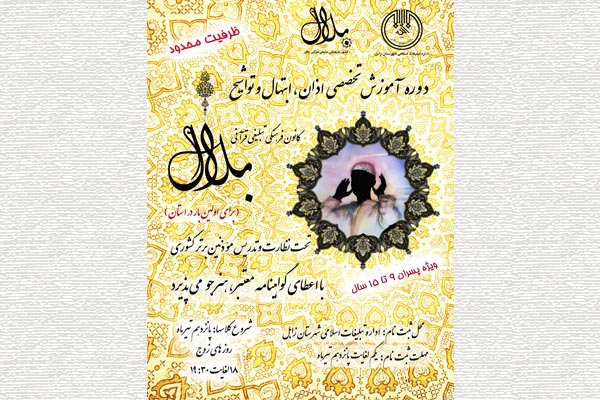 ظرفیت محدود
بلال
اداره تبلیغات اسلامی شهرستان زابل
دوره آموزش تخصصی اذان، ابتهال و تواشیح
کانون فرهنگی تبلیغی قرآنی
بلال
(برای اولین بار در استان)
تحت نظارت و تدریس موذنین برتر کشوری
با اعطای گواهینامه معتبر، هنرجو می پذیرد
ویژه پسران ۹ تا ۱۵ سال
محل ثبت نام: اداره تبلیغات اسلامی شهرستان زابل
مهلت ثبت نام: یکم لغایت پانزدهم تیرماه
شروع کلاسها: پانزدهم تیرماه
روزهای زوج
۱۸ لغایت ۱۹:۳۰